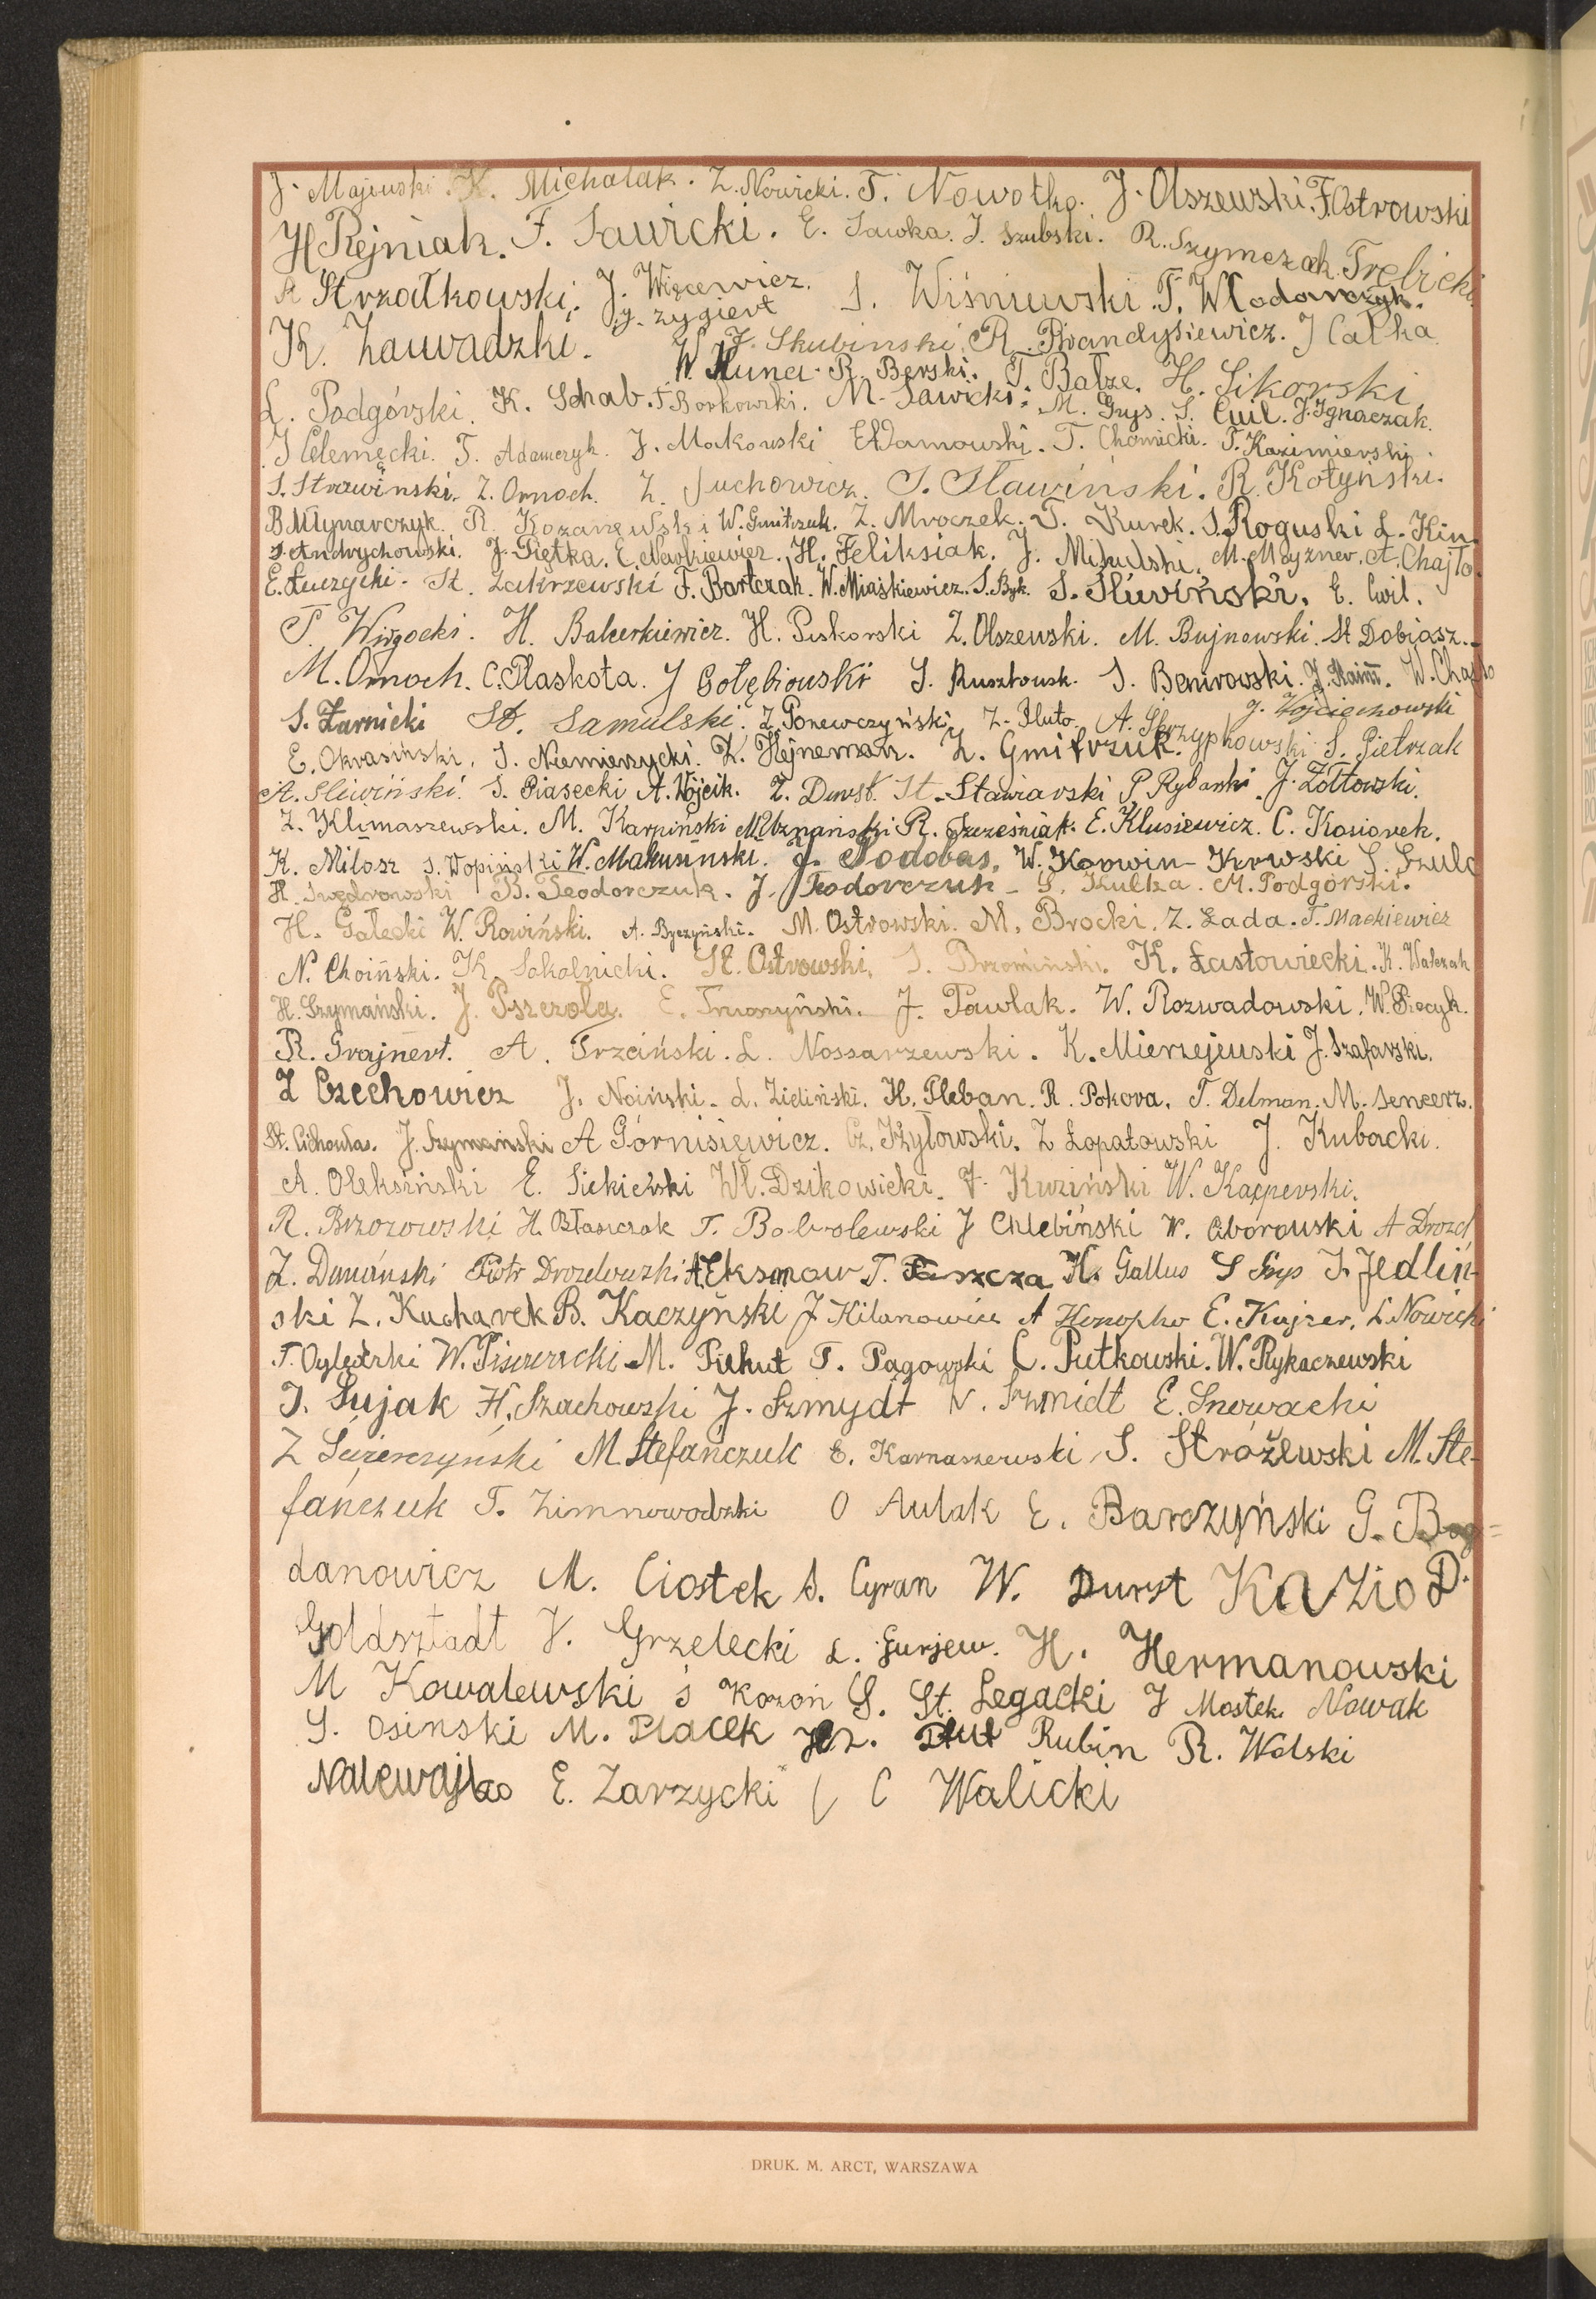 J. Majewski K. Michalak. Z. Nowicki. T. Nowotko. J. Olszewski. F. Ostrowski
H Rejniak. F. Sawicki. E. Sawka. J. Szubski. R. Szymczak. Trebicki
A Strzałkowski. J. Więcewicz. S. Wiśniewski. T. Włodarczyk.
J. Zygiert
K. Zawadzki. J. Skubinski. R. Brandysiewicz. J Całka
W. Kuna. R. Berski. T Balze. H. Sikorski
L. Podgórski. K. Schab. F Borkowski. M. Sawicki. M. Gys. S. Cwil. J. Ignaczak.
J Celemęcki. T. Adamczyk. J. Makowski E Adamowski. T. Chomicki. T. Kazimierski.
S. Strawinski. Z. Omoch. Z. Suchowicz. S. Sławiński. R. Kotyński.
B. Młynarczyk. R. Kozanewski W. Gmitrzuk. Z. Mroczek. T. Kurek. S. Roguski L. Kin.
S. Andrychowski. J. Piętka. E. Nawkiewicz. H. Feliksiak. J. Mikulski. M. Meyzner. A. Chajło.
E. Łuczycki. St. Zakrzewski F. Bartczak. W. Miaśkiewicz. S. Byk. S. Śliwiński. E. Cwil.
T. Wizgocki. H. Balcerkiewicz. H. Piskorski Z. Olszewski. M. Bujnowski. St Dobiasz.
M. Omoch. C. Płaskota. J Gołębiowski S. Rusztowsk. S. Benirowski. J. Haim. W. Chajło
S. Żarnicki St. Samulski. Z. Ponewczyński Z. Pluto. A. Skrzypkowski J. Wojciechowski
E. Okrasiński. S. Niemierzycki. K. Hejneman. Z. Gmitrzuk. S. Pietrzak
A. Sliwiński. S. Piasecki A. Wójcik. Z. Durst. St. Stawiarski P. Rybarski. J. Żółtowski.
Z. Klimaszewski. M. Karpiński M. Uznański R. Szcześniak. E. Klusiewicz. C. Kosiorek.
K. Milosz S. Wopiński W. Makusiński. J. Sodobas. W. Korwin-Krowski S. Szulc
H. Swędrowski B. Teodorczuk. J. Teodorczuk. S. Kulka. M. Podgórski.
H. Gałecki W. Rowiński. A. Byczyński. M. Ostrowski. M. Brocki. Z. Łada. T. Mackiewicz
N. Choiński. K. Sokolnicki. St. Ostrowski. S. Brzomiński. K. Łastowiecki. K. Walczak
H. Szymański. J. Pszczoła. E. Truszyński. J. Pawlak. W. Rozwadowski. W. Piecyk.
R. Grajnert. A. Trzciński. L. Nossarzewski. K. Mierzejewski J. Szafarski.
Z Czechowicz J. Noiński. L. Zieliński. H. Pleban. R. Pokora. T. Delman. M. Sencerz.
St. Cichowlas. J. Szymański A Górnisiewicz. Cz. Kżyłowski. Z Łopatowski J. Kubacki.
A. Oleksiński E. Siekierski Wł. Dzikowicki. F. Kuziński W. Kacperski.
R. Brzozowski H. Błaszczak T. Bobrolewski J Chlebiński W. Ciborowski A Drozd
Z. Dunański Piotr Drozdowski A. Eksmow T. Faszcza H. Gallus S Gryp J. Jedliń-
ski Z. Kucharek B. Kaczyński J Kilanowicz A Konopko E. Kujzer. L. Nowicki
T. Oględzki W. Piszczacki M. Piekut T. Pągowski C. Putkowski. W. Rykaczewski
J. Sujak H. Szachowski J. Szmydt W. Szmidt E. Snowacki
Z Świerczyński M. Stefańczuk E. Karnaszewski S. Stróżewski M. Ste-
fańczuk T. Zimnowodzki O Aulak E. Barczyński G. Bog=
danowicz M. Ciostek S. Cyran W. Durst Kazio D.
Goldsztadt V. Grzelecki L. Gurjew. H. Hermanowski
M Kowalewski S Kozoń S. St. Legacki J Mostek Nowak
S. Osinski M. Placek Plut Rubin R. Wolski
Nalewajko E. Zarzycki C Walicki
DRUK. M. ARCT, WARSZAWA